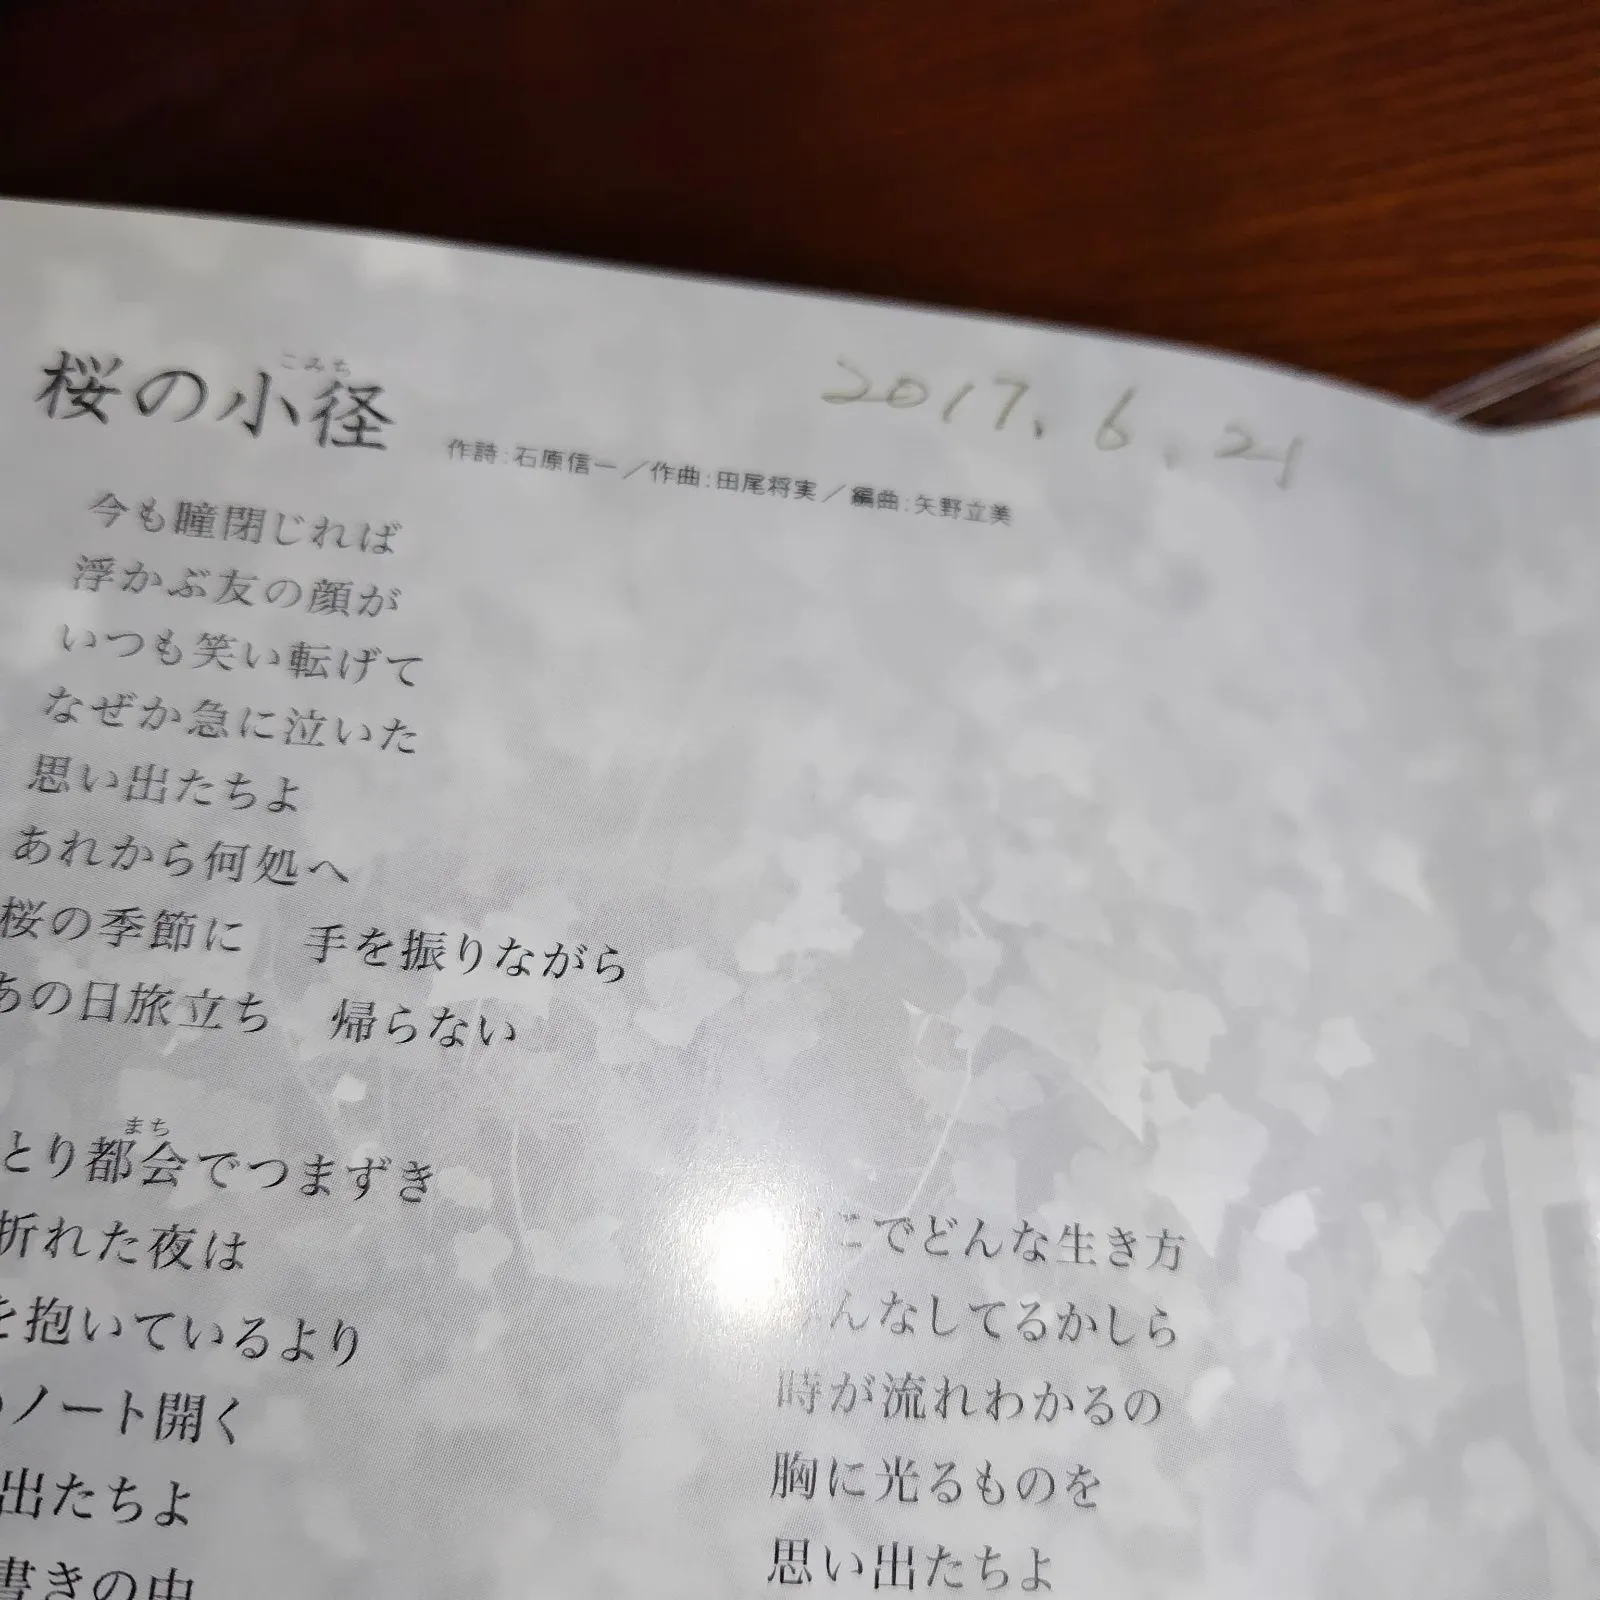 桜の小径
こみち
2017.6.21
作詩:石原信一／作曲:田尾将実／編曲:矢野立美
今も瞳閉じれば
浮かぶ友の顔が
いつも笑い転げて
なぜか急に泣いた
思い出たちよ
あれから何処へ
桜の季節に　手を振りながら
あの日旅立ち　帰らない
とり都会でつまずき
まち
折れた夜は
を抱いているより
ノート開く
出たちよ
書きの中
こでどんな生き方
んなしてるかしら
時が流れわかるの
胸に光るものを
思い出たちよ